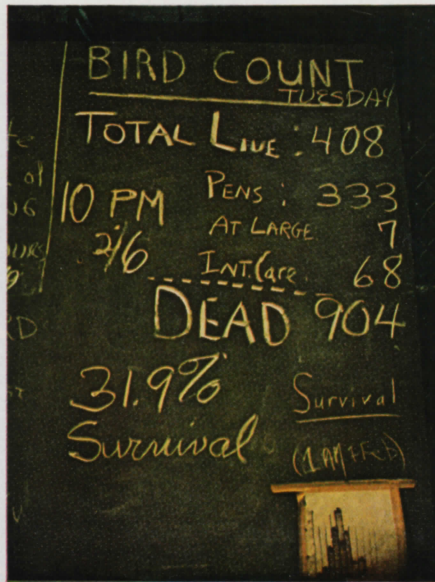 BIRD COUNT
TUESDAY
TOTAL LIVE : 408
10 PM
2/6
PENS : 333
AT LARGE 7
INT. Care. 68
DEAD 904
31.9%
Survival
Survival
of